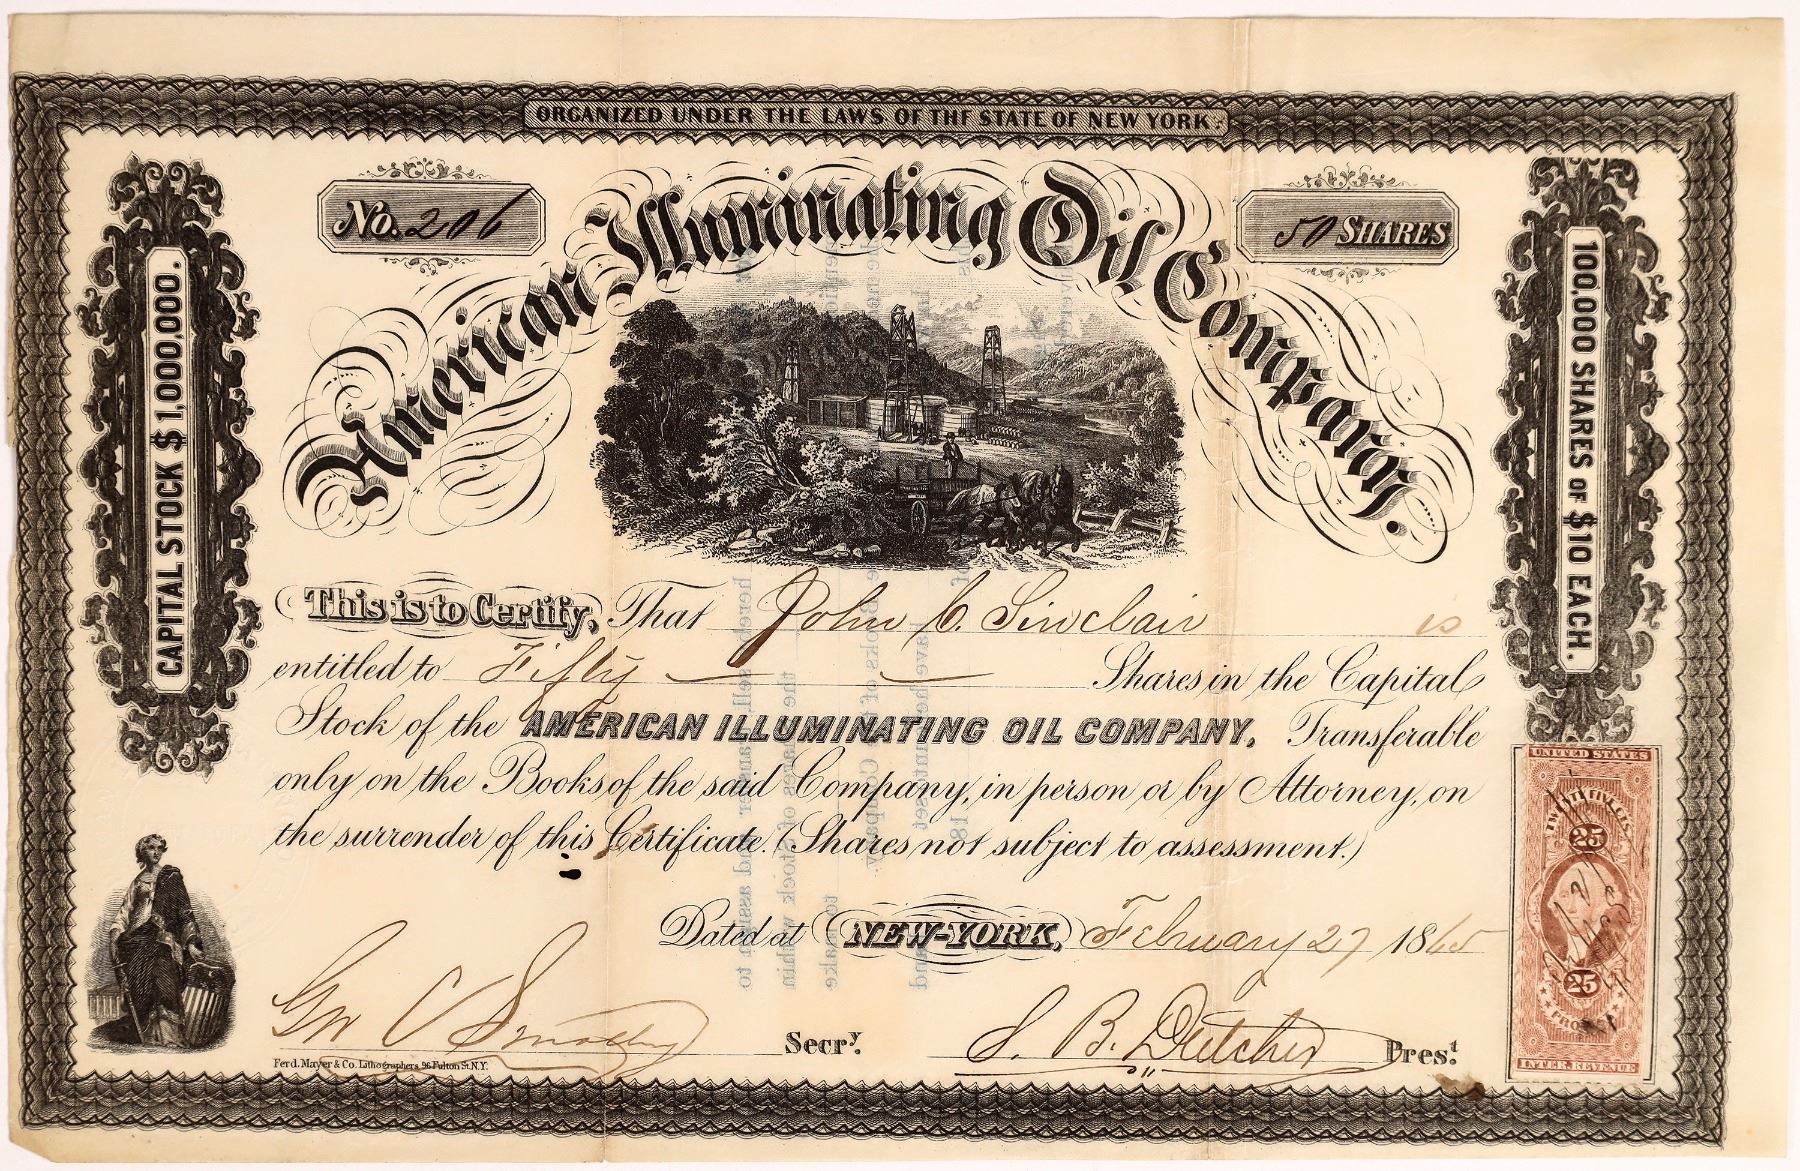 ORGANIZED UNDER THE LAWS OF THE STATE OF NEW YORK
No. 206
American Illuminating Oil Company.
50 SHARES
CAPITAL STOCK $1,000,000.
100,000 SHARES OF $10 EACH.
This is to Certify, That John C. Sinclair is
entitled to Fifty Shares in the Capital
Stock of the AMERICAN ILLUMINATING OIL COMPANY, Transferable
only on the Books of the said Company, in person or by Attorney, on
the surrender of this Certificate. (Shares not subject to assessment.)
Dated at NEW-YORK, February 27 1865
Secry.
S. B. Dutcher Prest.
Ferd. Mayer & Co. Lithographers, 96 Fulton St. N.Y.
UNITED STATES
TWENTY FIVE CTS.
25
25
INTER. REVENUE